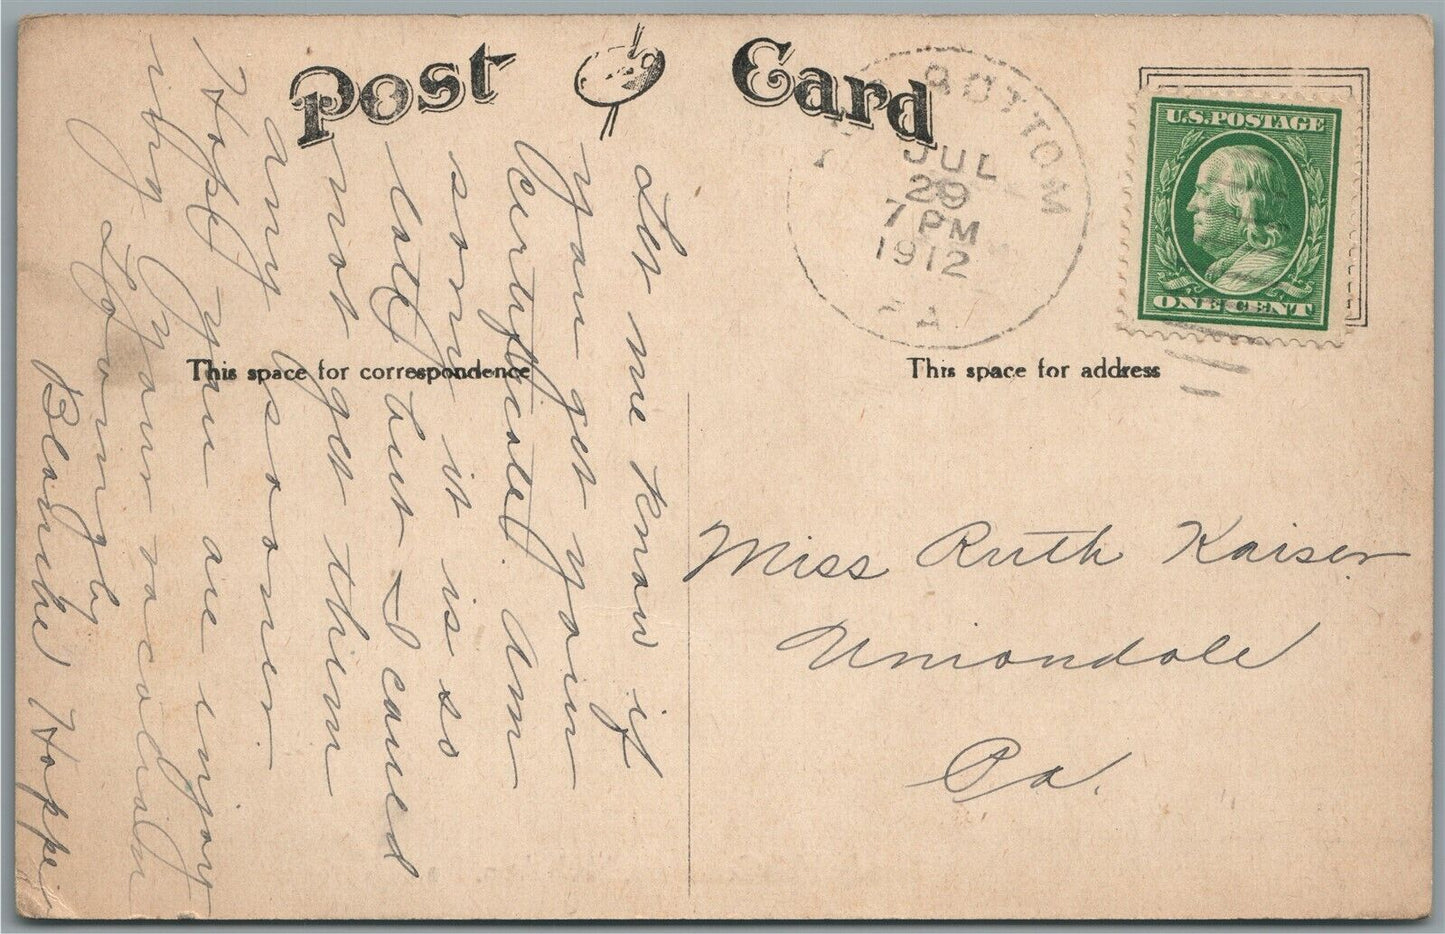 Post Card
ROYTOWN
JUL
29
7 PM
1912
PA
U.S. POSTAGE
ONE CENT
This space for correspondence
This space for address
Let me know if
you get your
Certificated. Am
sorry it is so
late but I could
not get them
any sooner
Hope you are injoy
ing your vacation
Lovingly
Blanche Hoppe
Miss Ruth Kaiser
Uniondale
Pa.